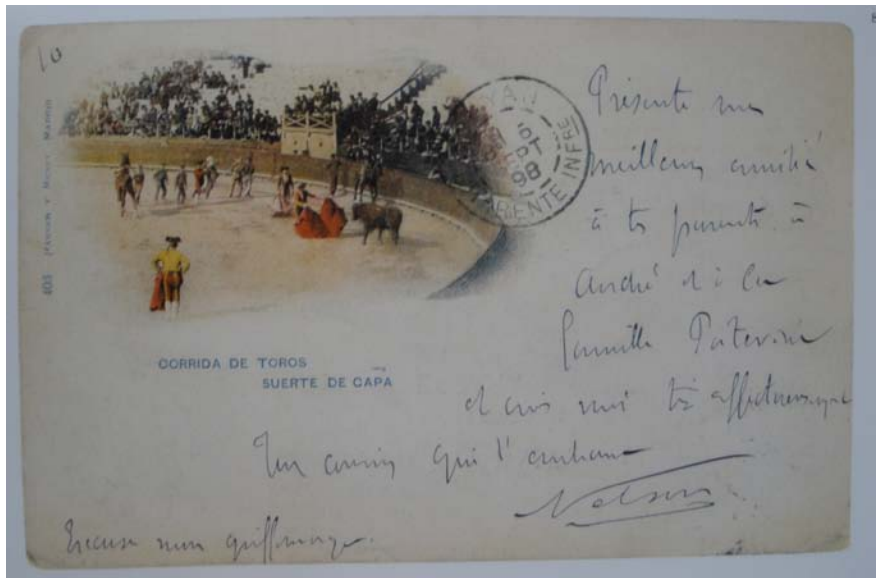 10
403 HAUSER Y MENET. MADRID
ROYAN
98
CHARENTE INFRE
CORRIDA DE TOROS
SUERTE DE CAPA
Présente mes
meilleurs amitié
à tes parents à
André et à la
famille
et crois moi très affectueusement
Ton cousin qui t'embrasse
Nelson
Excuse mon griffonnage.